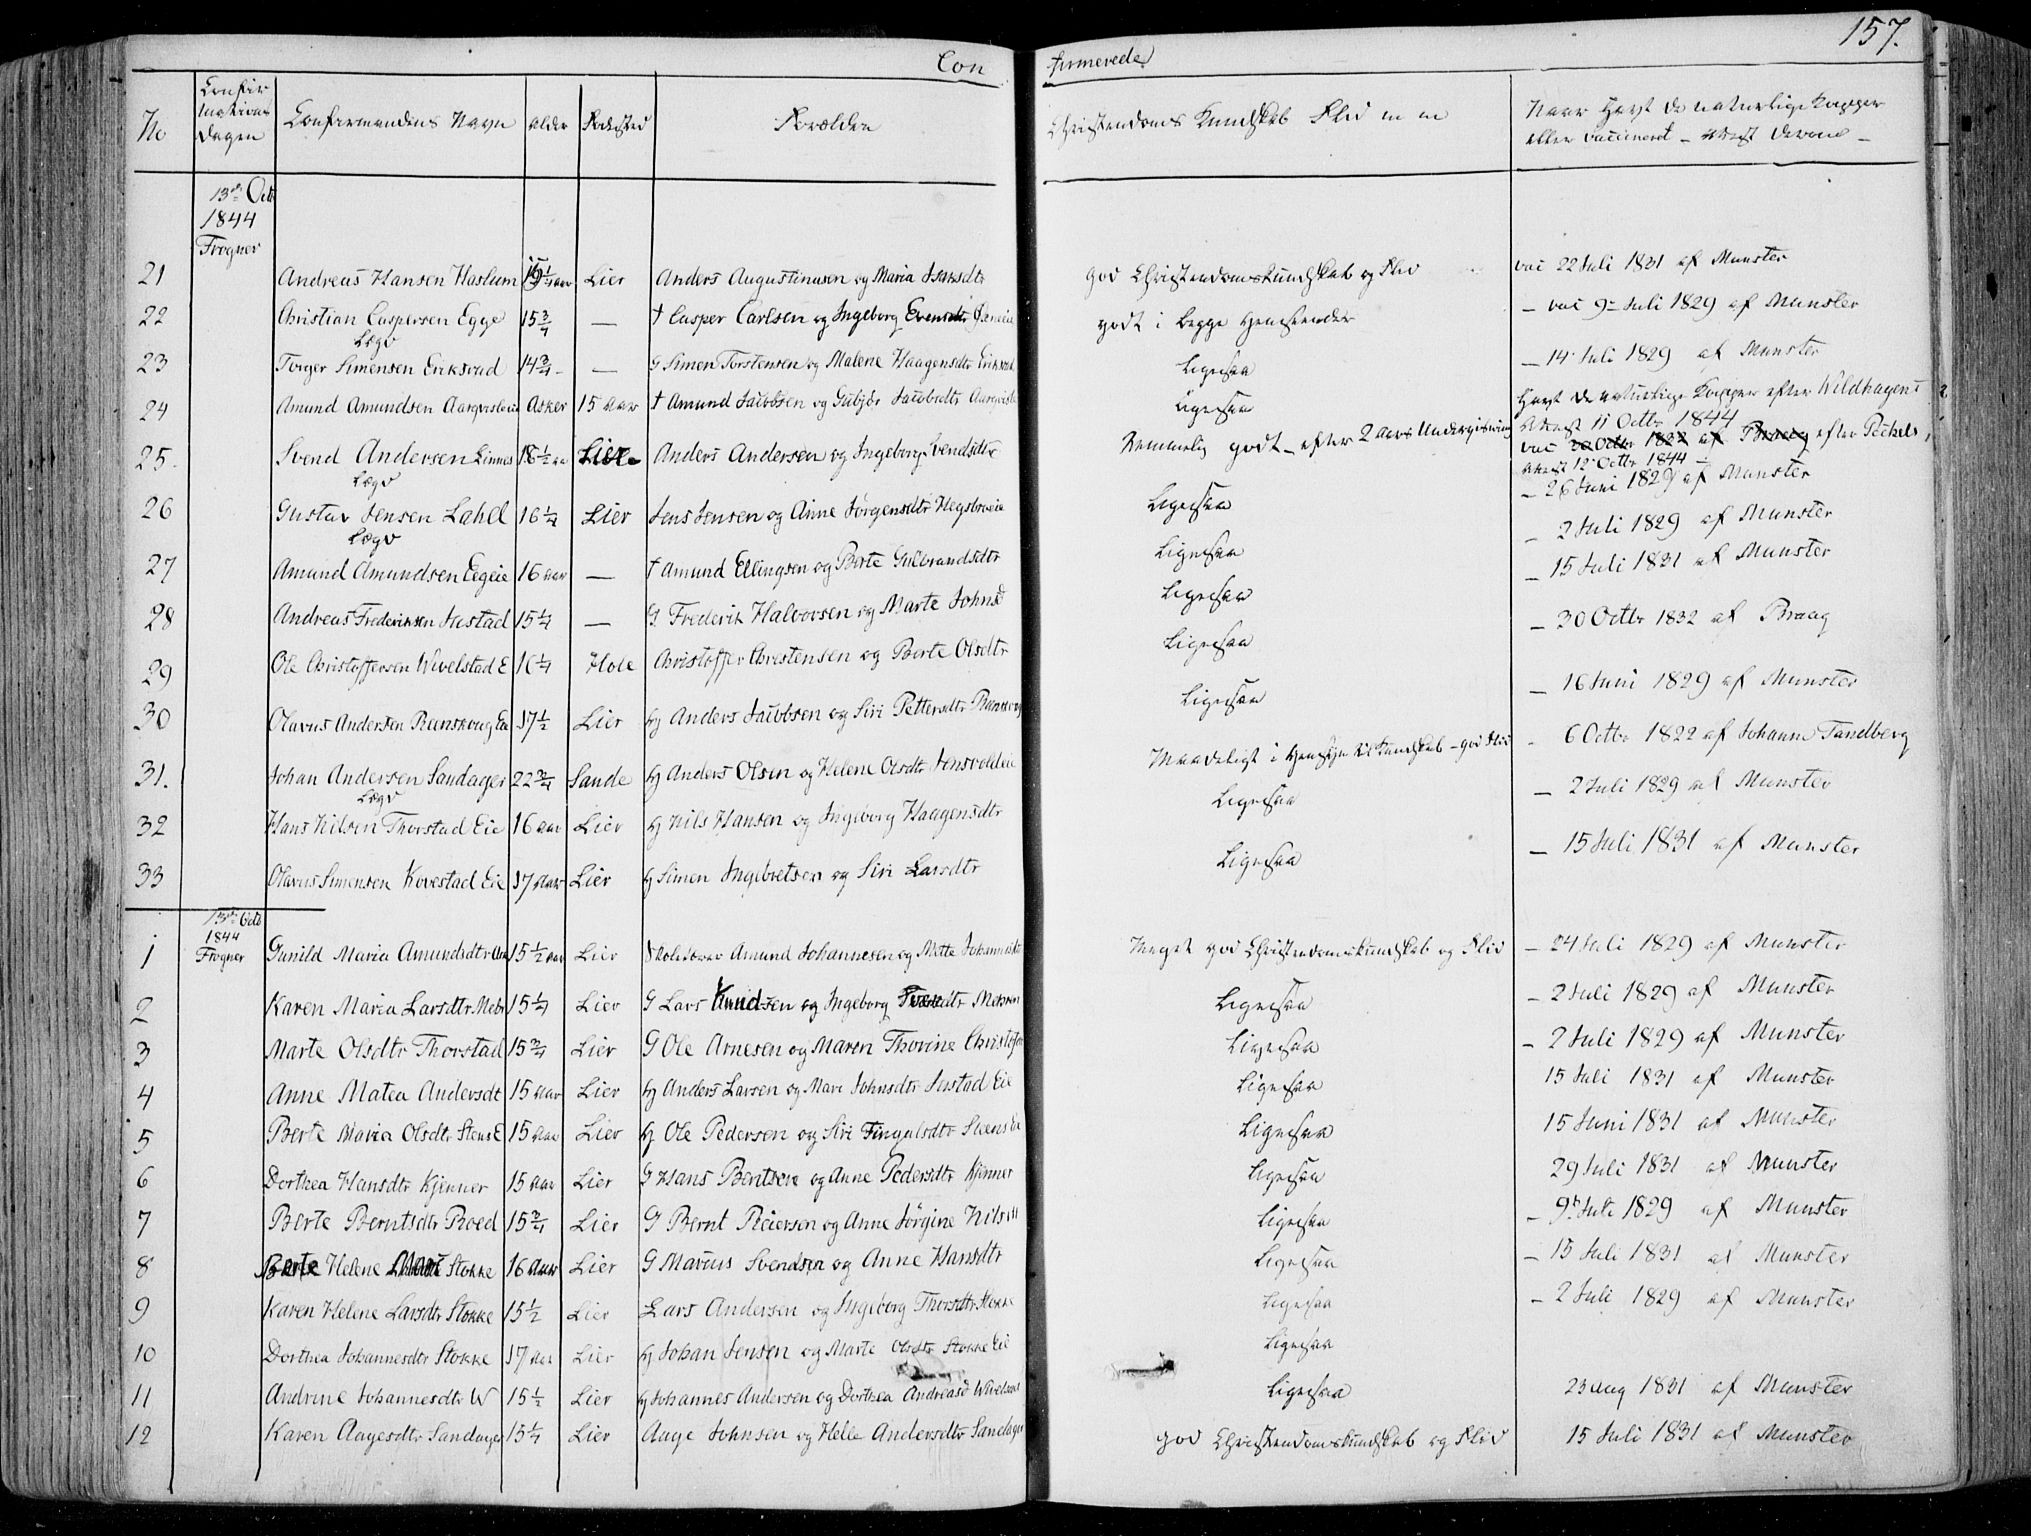 157.
Con firmerede
No Confirmations Dagen Confirmandens Navn Alder Fødested Forældre Christendoms Kundskab Flid m m Naar Havt de naturlige Kopper eller vaccineret - Attest derom -
13de Octb
1844
Frogner
21 Andreas Hansen Haslum Lier Anders Augustinusen og Maria Isaksdtr god Christendomskundskab og Flid vac 22 Juli 1831 af Munster
22 Christian Caspersen Egge 15 3/4 — † Casper Carlsen og Ingeborg Evensdtr godt i begge Henseender — vac 9- Juli 1829 af Munster
Lægd
23 Torger Simensen Eriksrud 14 3/4 - — G Simen Torstensen og Malene Haagensdtr Eriksrud Ligesaa — 14 Juli 1829 af Munster
24 Amund Amundsen Asker 15 aar † Amund Jacobsen og Gubjør Jacobsdtr Ligesaa Havt de naturlige Kopper efter Wildhagens
Attest 11 Octbr 1844
25. Svend Andersen Linnes Lier Anders Andersen og Ingeborg Svendsdtr Nemmelig godt - efter 2 aars Undervisning vac 30 Octbr 1832 af Praag efter Pickels
Attest 12 Octbr 1844
Lægd
— 26 Juni 1829 af Munster
26 Gustav Jensen Lahel 16 1/4 Lier Jens Jensen og Anne Jørgensdtr Hegsbroeie Ligesaa
Lægd
— 2 Juli 1829 af Munster
27 Amund Amundsen Egeie 16 aar — † Amund Ellingsen og Berte Gulbrandsdtr Ligesaa — 15 Juli 1831 af Munster
28 Andreas Frederiksen Justad 15 1/4 — G Frederik Halvorsen og Marte Johnsd Ligesaa — 30 Octbr 1832 af Praag
29 Ole Christoffersen Wivelstad E 16 1/4 Hole Christoffer Christensen og Berte Olsdtr Ligesaa
— 16 Juni 1829 af Munster
30 Olavus Andersen Ranskoug Eie 17 1/2 Lier Hj Anders Jacobsen og Siri Pettersdtr Ranskoug Ligesaa
31. Johan Andersen Sandager 22 3/4 Sande Hj Anders Olsen og Helene Olsdtr Maadeligt i Hensyn til Kundskab - god Flid - 6 Octbr 1822 af Johanne Tandberg
Lægd
32 Hans Nilsen Thorstad Eie 16 aar Lier Hj Nils Hansen og Ingeborg Haagensdtr Ligesaa — 2 Juli 1829 af Munster
33 Olavus Simensen Kovestad Eie 17 aar Lier Hj Simen Ingebretsen og Siri Larsdtr Ligesaa — 15 Juli 1831 af Munster
13de Octb
1844
Frogner
1 Gunild Maria Amundsdtr 15 1/2 aar Lier Skolelærer Amund Johannesen og Mette Johannesdtr Meget god Christendomskundskab og Flid — 24 Juli 1829 af Munster
2 Karen Maria Larsdtr Mebr 15 1/4 Lier G Lars Knudsen og Ingeborg Ligesaa — 2 Juli 1829 af Munster
3 Marte Olsdtr Thorstad 15 3/4 Lier G Ole Arnesen og Maren Thorine Christofer Ligesaa — 2 Juli 1829 af Munster
4 Anne Matea Andersdt 15 aar Lier Hj Anders Larsen og Mari Johnsdtr Justad Eie Ligesaa 15 Juli 1831 af Munster
5 Berte Maria Olsdtr Stens E 15 aar Lier Hj Ole Pedersen og Siri Fingalsdtr Steens Eie Ligesaa 15 Juni 1831 af Munster
6 Dorthea Hansdtr Kjenner 15 aar Lier G Hans Bentsen og Anne Pedersdtr Kjenner Ligesaa 29 Juli 1831 af Munster
7 Berte Berntsdtr Roed 15 3/4 Lier G Bernt Reiersen og Anne Jørgine Nilsdtr Ligesaa — 9de Juli 1829 af Munster
8 Berte Helene Stokke 16 aar Lier G Marcus Svendsen og Anne Hansdtr Ligesaa — 15 Juli 1831 af Munster
9 Karen Helene Larsdtr Stokke 15 1/2 Lier Lars Andersen og Ingeborg Thorsdtr Stokke Ligesaa — 2 Juli 1829 af Munster
10 Dorthea Johannesdtr Stokke 17 aar Lier Hj Johan Jensen og Marte Olsdtr Stokke Eie Ligesaa
11 Andrine Johannesdtr W 15 1/2 Lier Hj Johannes Andersen og Dorthea Andreasd Wivelstad Ligesaa 23 aug 1831 af Munster
12 Karen Aagesdtr Sandager 15 1/4 Lier Aage Johnsen og Helle Andersdtr Sandager god Christendomskundskab og Flid 15 Juli 1831 af Munster